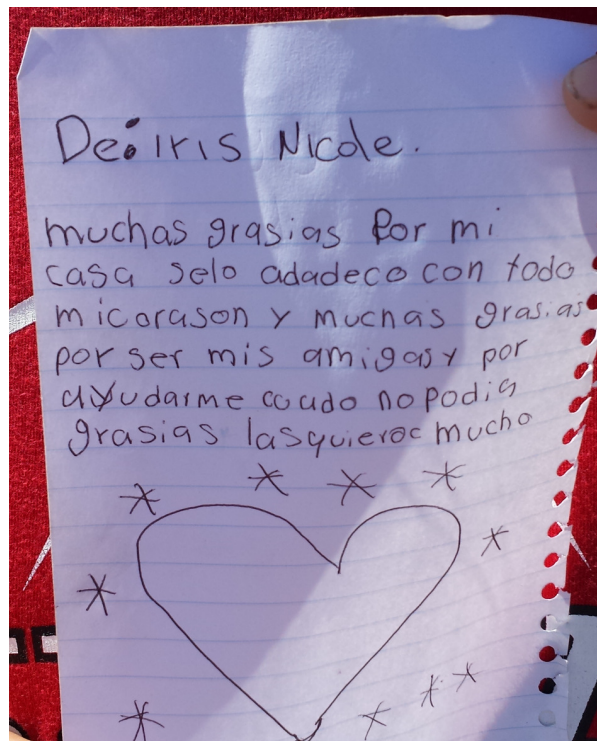 De: Iris Nicole.
muchas grasias por mi
casa selo adadeco con todo
micorason y muchas grasias
por ser mis amigas y por
ayudarme cuado no podia
grasias lasquieroc mucho